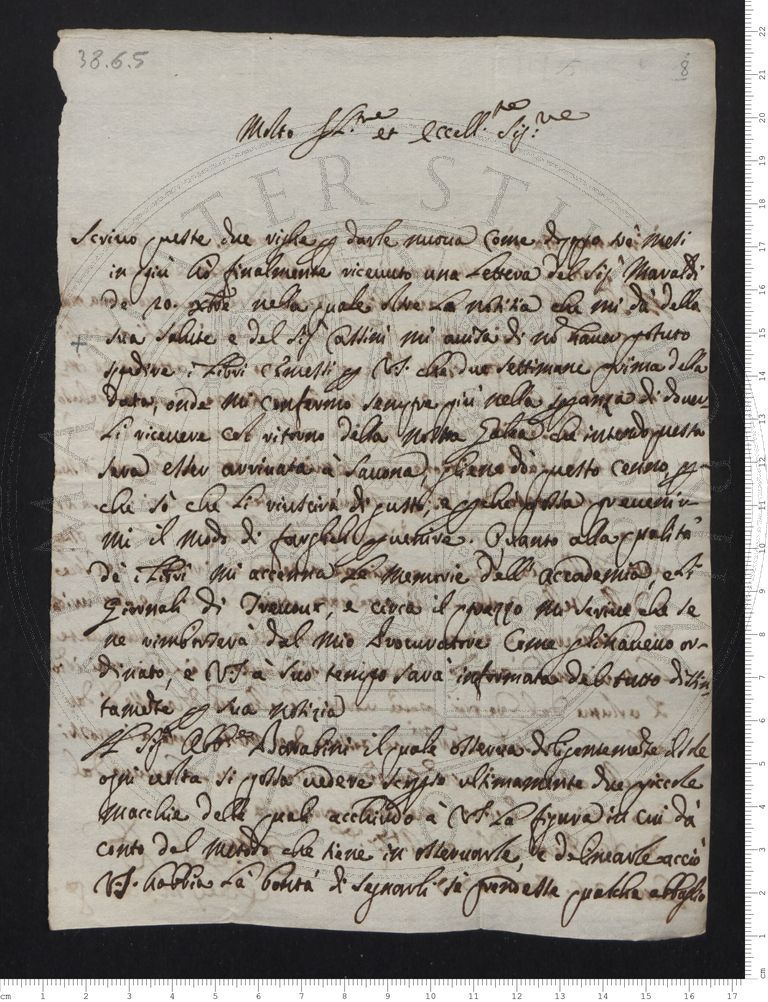 38.6.5
8
Molto Ill.tre et Eccell.te Sig.re
Scrivo queste due righe p darle nuova come doppo trè mesi
in più hò finalmente ricevuto una lettera del Sig.r Maraldi
de 20. xbre nella quale oltre la notizia che mi dà della
sua salute e del Sig.r Cassini mi avisa di nō haver potuto
spedire i libri cōmessi p V.S. che due settimane prima della
data, onde mi confermo sempre più nella speranza di dover-
li ricevere col ritorno della nostra Galea che intendo questa
sera esser arrivata à Savona, gliene dò questo cenno p-
che sò che li riuscirà di gusto, e pche possa prevenir-
mi il modo di farglieli pvenire. Quanto alla qualità
de i libri mi accenna le memorie dell'Accademia, e li
Giornali di Trevoux, e circa il prezzo mi scrive che se
ne rimborserà dal mio Procuratore come gli havevo or-
dinato, e V.S. à suo tempo sarà informata del tutto distin-
tamēte p sua notizia
Il Sig.r Abb.e Barabini il quale osserva diligentemēte il Sole
ogni volta si possa vedere scoprso ultimamente due piccole
macchie delle quali acchiudo à V.S. la figura in cui dà
conto del metodo che tiene in osservarle, e delinearle acciò
V.S. habbia la bontà di segnarli se prendesse qualche abbaglio